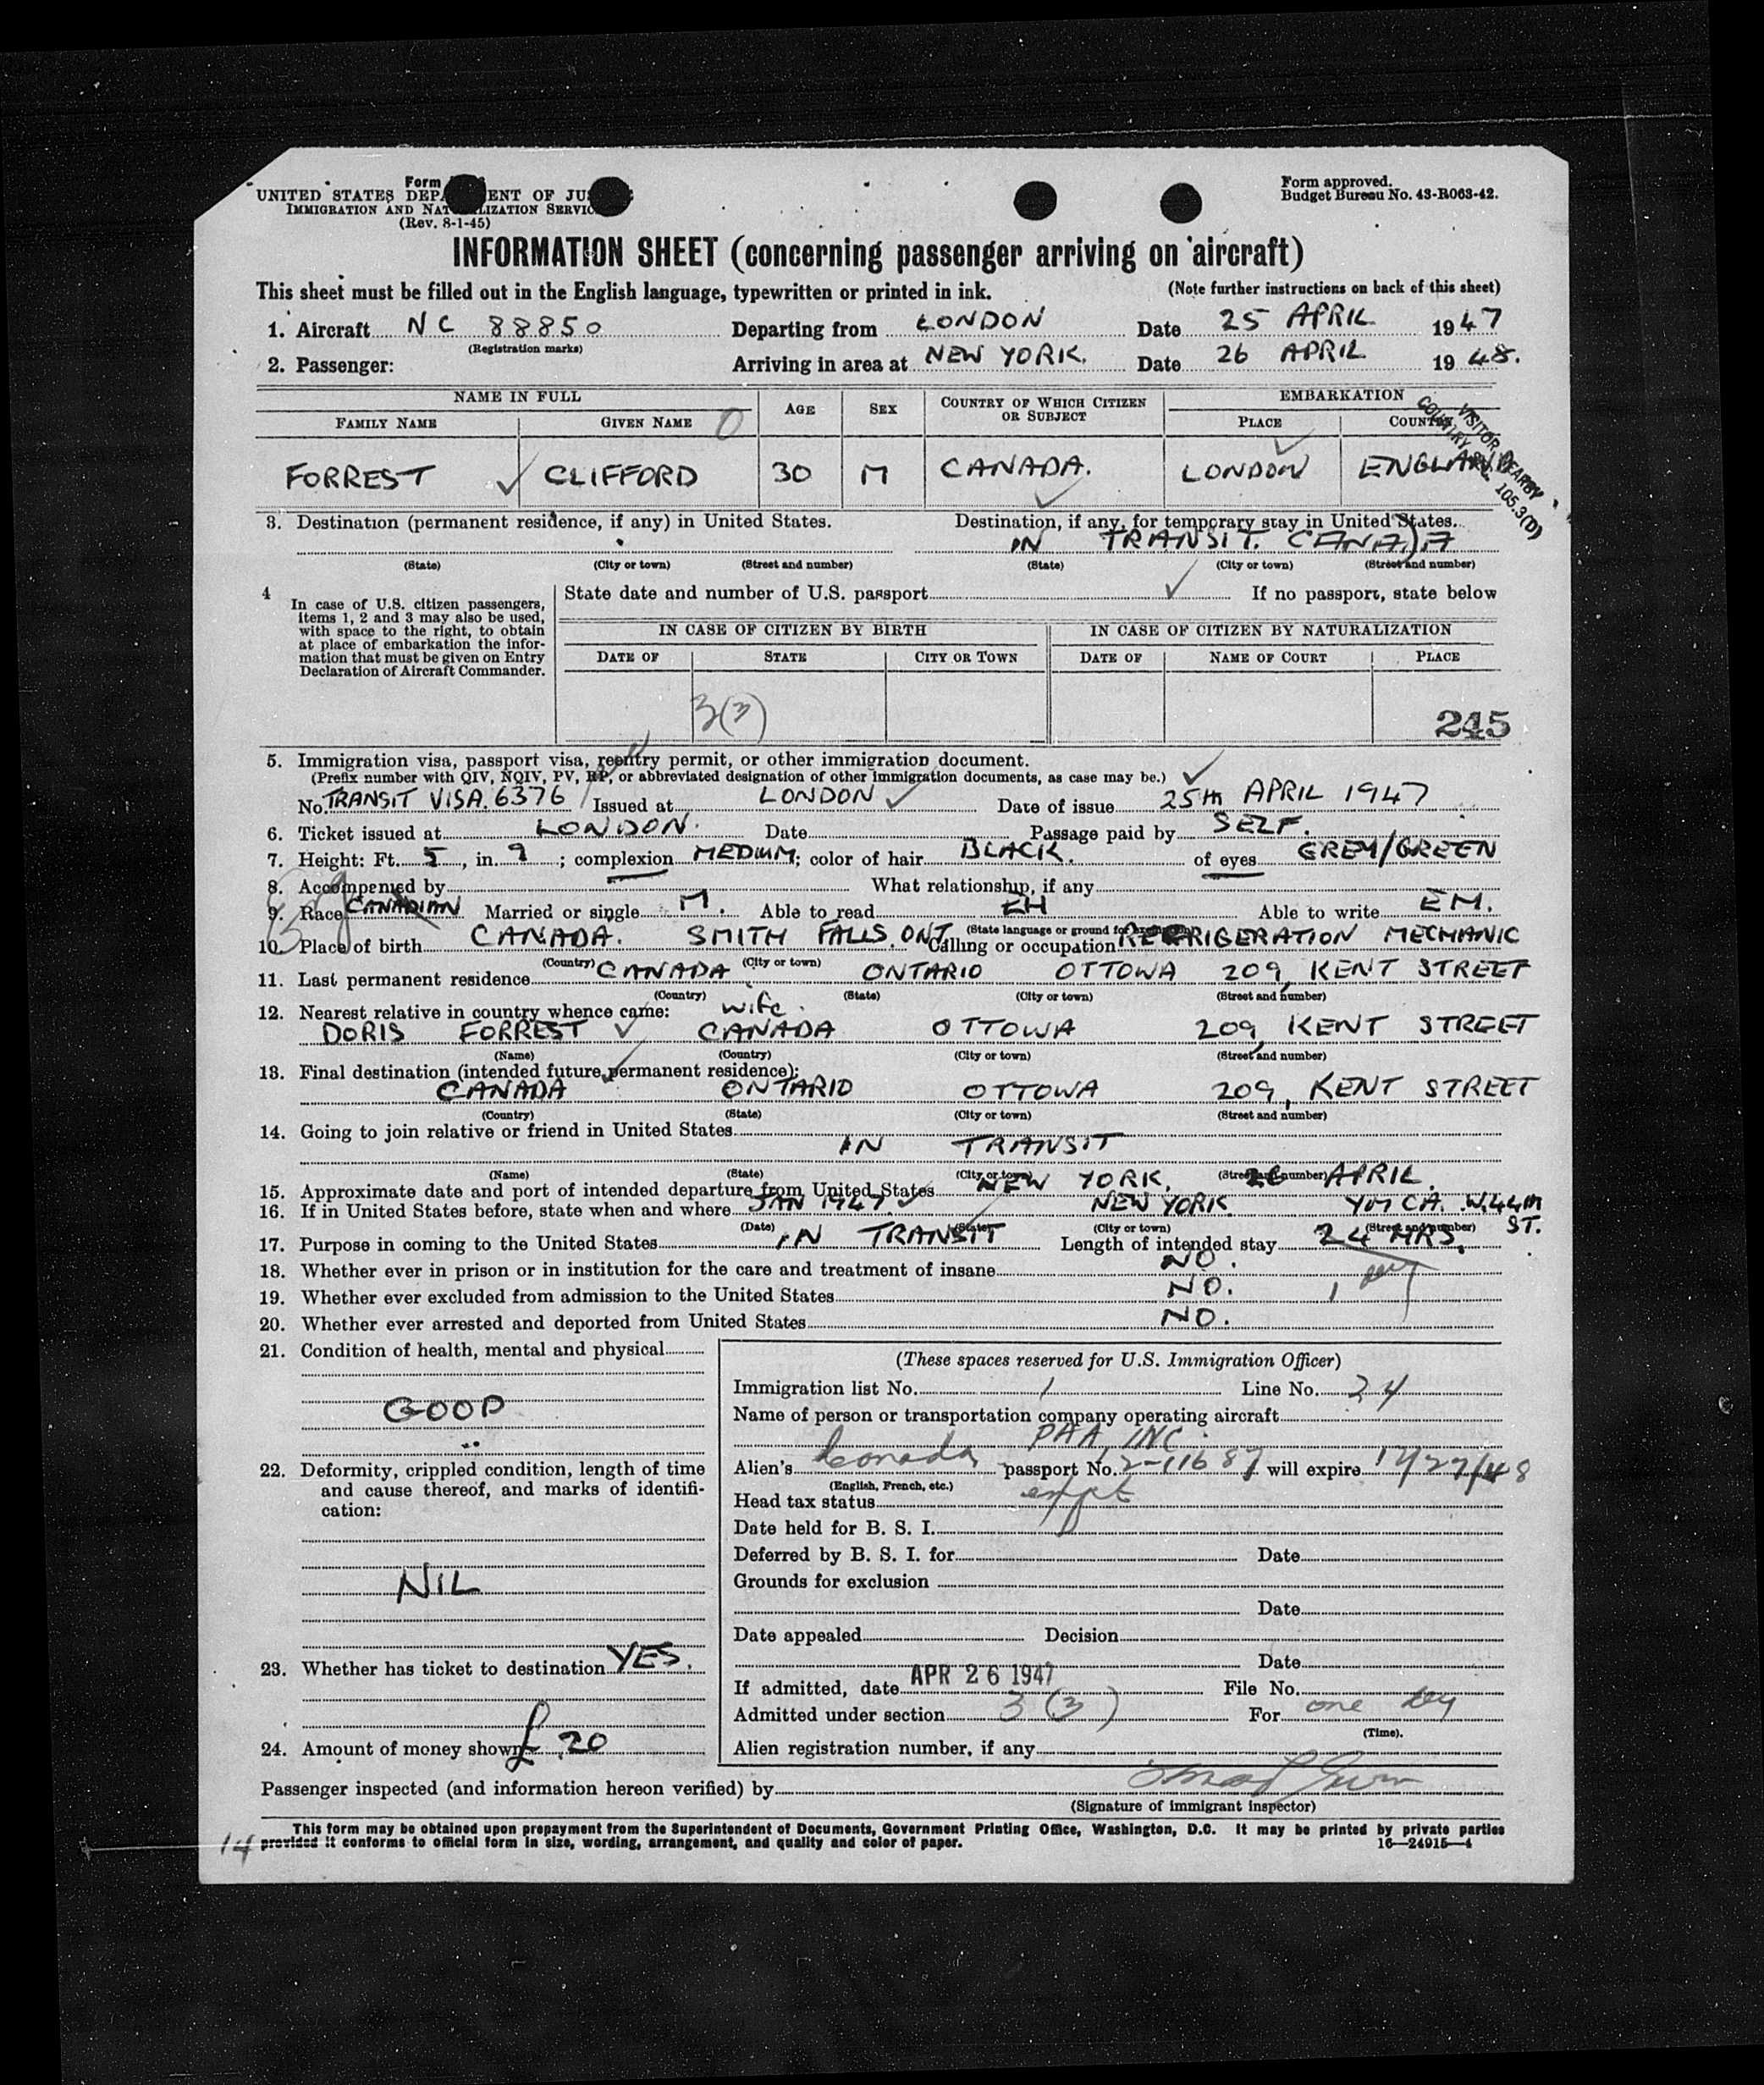 Form
UNITED STATES DEPA ENT OF JUS
IMMIGRATION AND NAT LIZATION SERVIC
(Rev. 8-1-45)
Form approved.
Budget Bureau No. 43-R063-42.
INFORMATION SHEET (concerning passenger arriving on aircraft)
This sheet must be filled out in the English language, typewritten or printed in ink. (Note further instructions on back of this sheet)
1. Aircraft NC 88850 Departing from LONDON Date 25 APRIL 1947
(Registration marks)
2. Passenger: Arriving in area at NEW YORK. Date 26 APRIL 1948.
NAME IN FULL AGE SEX COUNTRY OF WHICH CITIZEN OR SUBJECT EMBARKATION
FAMILY NAME GIVEN NAME O PLACE COUNTRY
VISITOR NEARBY
COUNTRY 105.3(D)
FORREST CLIFFORD 30 M CANADA. LONDON ENGLAND
3. Destination (permanent residence, if any) in United States. Destination, if any, for temporary stay in United States.
IN TRANSIT. CANADA
(State) (City or town) (Street and number) (State) (City or town) (Street and number)
4 In case of U.S. citizen passengers,
items 1, 2 and 3 may also be used,
with space to the right, to obtain
at place of embarkation the infor-
mation that must be given on Entry
Declaration of Aircraft Commander.
State date and number of U.S. passport If no passport, state below
IN CASE OF CITIZEN BY BIRTH IN CASE OF CITIZEN BY NATURALIZATION
DATE OF STATE CITY OR TOWN DATE OF NAME OF COURT PLACE
3(3) 245
5. Immigration visa, passport visa, reentry permit, or other immigration document.
(Prefix number with QIV, NQIV, PV, RP, or abbreviated designation of other immigration documents, as case may be.)
No. TRANSIT VISA. 6376 Issued at LONDON Date of issue 25TH APRIL 1947
6. Ticket issued at LONDON. Date Passage paid by SELF.
7. Height: Ft. 5, in. 9; complexion MEDIUM; color of hair BLACK. of eyes GREY/GREEN
8. Accompanied by What relationship, if any
9. Race CANADIAN Married or single M. Able to read EH Able to write EM.
(State language or ground for exemption)
10. Place of birth CANADA. SMITH FALLS, ONT. Calling or occupation REFRIGERATION MECHANIC
(Country) (City or town)
11. Last permanent residence CANADA ONTARIO OTTOWA 209, KENT STREET
(Country) (State) (City or town) (Street and number)
12. Nearest relative in country whence came: wife.
DORIS FORREST CANADA OTTOWA 209, KENT STREET
(Name) (Country) (City or town) (Street and number)
13. Final destination (intended future permanent residence):
CANADA ONTARIO OTTOWA 209, KENT STREET
(Country) (State) (City or town) (Street and number)
14. Going to join relative or friend in United States
IN TRANSIT
(Name) (State) (City or town) (Street and number)
15. Approximate date and port of intended departure from United States NEW YORK. 26 APRIL.
16. If in United States before, state when and where JAN 1947. NEW YORK. YMCA. W.44TH ST.
(Date) (State) (City or town) (Street and number)
17. Purpose in coming to the United States IN TRANSIT Length of intended stay 24 HRS.
18. Whether ever in prison or in institution for the care and treatment of insane NO.
19. Whether ever excluded from admission to the United States NO. 1 day
20. Whether ever arrested and deported from United States NO.
21. Condition of health, mental and physical
GOOD
22. Deformity, crippled condition, length of time
and cause thereof, and marks of identifi-
cation:
NIL
23. Whether has ticket to destination YES.
24. Amount of money shown £ 20
(These spaces reserved for U.S. Immigration Officer)
Immigration list No. 1 Line No. 24
Name of person or transportation company operating aircraft
PAA, INC.
Alien's Canada passport No. 2-11687 will expire
(English, French, etc.)
Head tax status
Date held for B. S. I.
Deferred by B. S. I. for Date
Grounds for exclusion
Date
Date appealed Decision
Date
If admitted, date APR 26 1947 File No.
Admitted under section 3 (3) For one day
(Time).
Alien registration number, if any
Passenger inspected (and information hereon verified) by
(Signature of immigrant inspector)
This form may be obtained upon prepayment from the Superintendent of Documents, Government Printing Office, Washington, D.C. It may be printed by private parties
14 provided it conforms to official form in size, wording, arrangement, and quality and color of paper. 16—24915-4